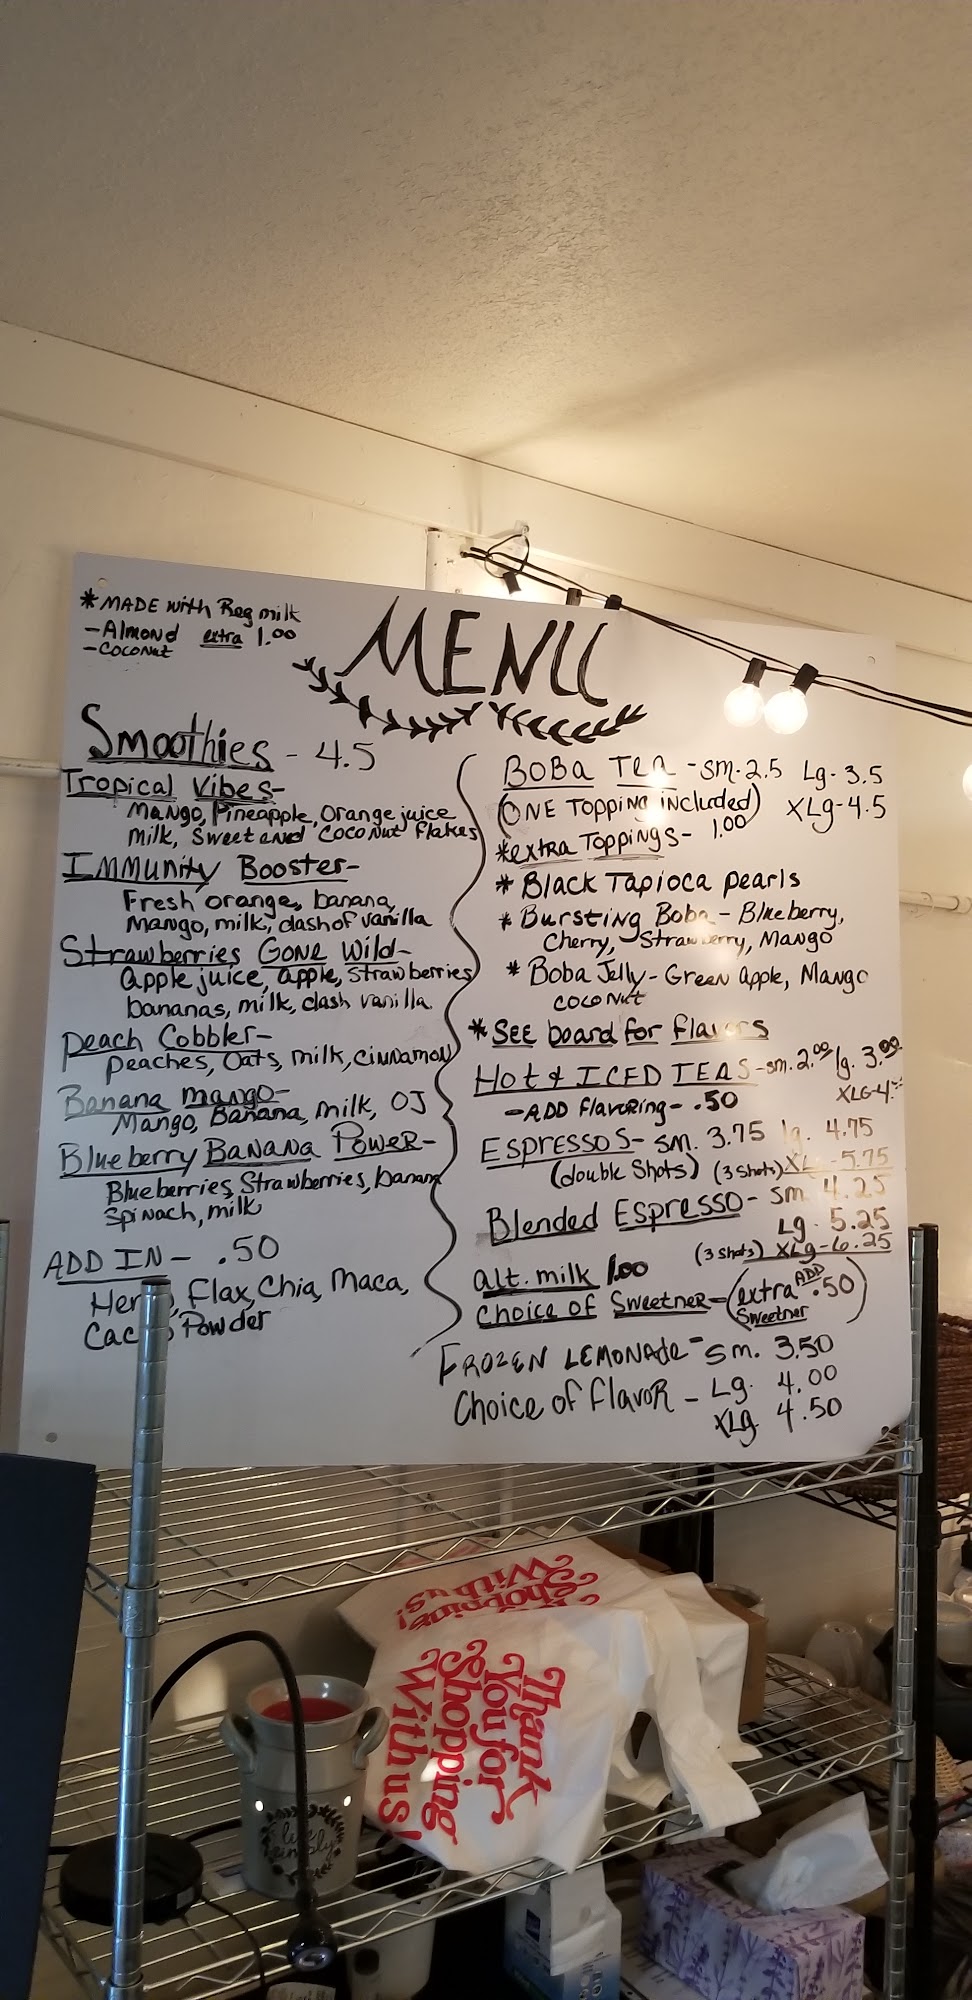 * MADE with Reg milk
- Almond extra 1.00
- COCONUT
MENU
Smoothies - 4.5
Tropical Vibes-
Mango, Pineapple, Orange juice
Milk, Sweetend Coconut flakes
Immunity Booster-
Fresh orange, banana,
Mango, milk, dash of vanilla
Strawberries Gone Wild-
Apple juice, apple, strawberries
bananas, milk, dash vanilla
Peach Cobbler-
peaches, oats, milk, cinnamon
Banana mango-
Mango, Banana, milk, OJ
Blueberry Banana Power-
Blueberries, Strawberries, banana
Spinach, milk
ADD IN - .50
Flax, Chia, Maca,
Powder
BOBA TEA - sm-2.5 Lg-3.5
(ONE Topping included) XLg-4.5
*extra Toppings- 1.00
* Black Tapioca pearls
* Bursting Boba - Blueberry,
Cherry, Strawberry, Mango
* Boba Jelly - Green apple, Mango
coconut
*See board for flavors
Hot & ICED TEAS - sm. 2.00 lg. 3.00
XLG-4.
-ADD flavoring- .50
ESPRESSOS- sm. 3.75 lg. 4.75
(double Shots) (3 Shots) XLg-5.75
Blended Espresso- sm 4.25
Lg. 5.25
(3 Shots) XLg-6.25
alt. milk 1.00
Choice of Sweetner- (extra ADD .50
Sweetner)
FROZEN LEMONADE - sm. 3.50
Choice of flavor - Lg. 4.00
XLg 4.50
Shopping
With us!
Thank
You for
Shopping
With us!
live
simply